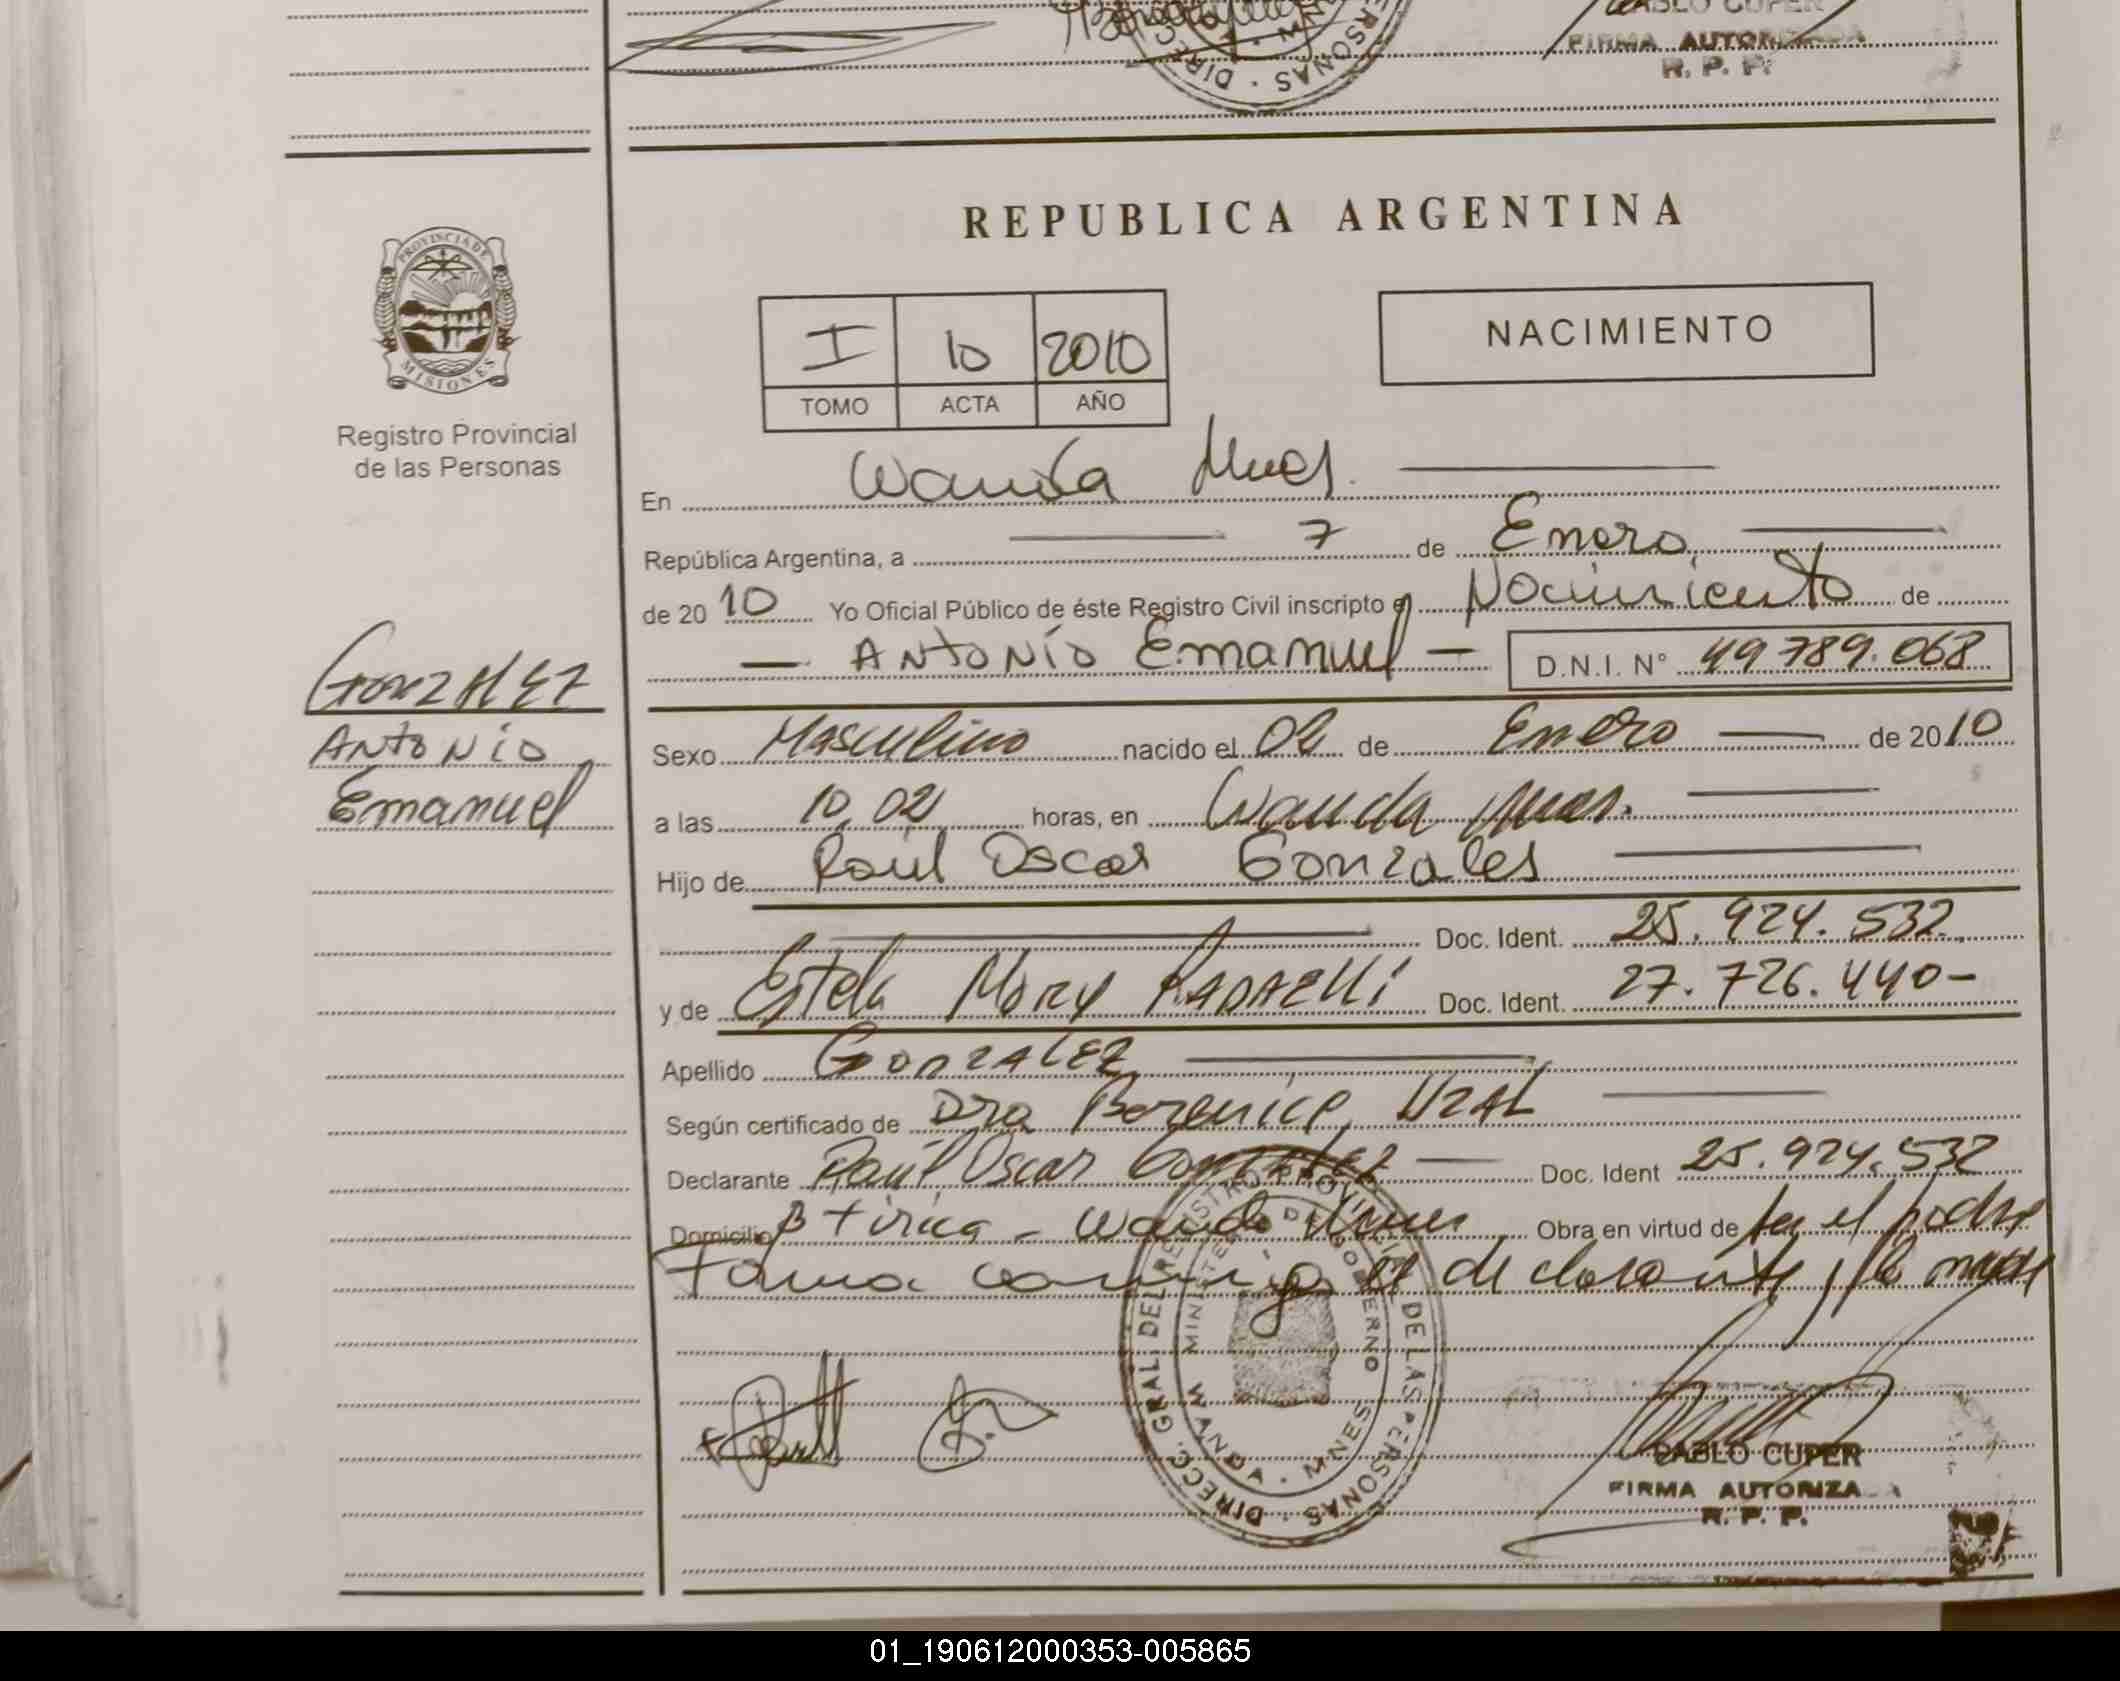 PABLO CUPER
FIRMA AUTORIZADA
R. P. P.
PROVINCIA DE
MISIONES
Registro Provincial
de las Personas
GONZALEZ
ANTONIO
Emanuel
REPUBLICA ARGENTINA
I 10 2010
TOMO ACTA AÑO
NACIMIENTO
En Wanda Mnes.
República Argentina, a 7 de Enero
de 20 10 Yo Oficial Público de éste Registro Civil inscripto el Nacimiento de
ANTONIO Emanuel D.N.I. N° 49.789.068
Sexo Masculino nacido el 02 de Enero de 2010
a las 10,02 horas, en Wanda Mnes.
Hijo de Raúl Oscar Gonzales
Doc. Ident. 25.924.532
y de Estela Mary Doc. Ident. 27.726.440-
Apellido GONZALEZ
Según certificado de Dra Berenice
Declarante Raúl Oscar González Doc. Ident 25.924.532
Domicilio Wanda Mnes Obra en virtud de ser el padre
Firma conmigo el declarante y la madre
DIRECC. GRAL. DEL REGISTRO PROVINCIAL DE LAS PERSONAS
MINISTERIO DE GOBIERNO
WANDA - MNES
PABLO CUPER
FIRMA AUTORIZA
R. P. P.
01_190612000353-005865